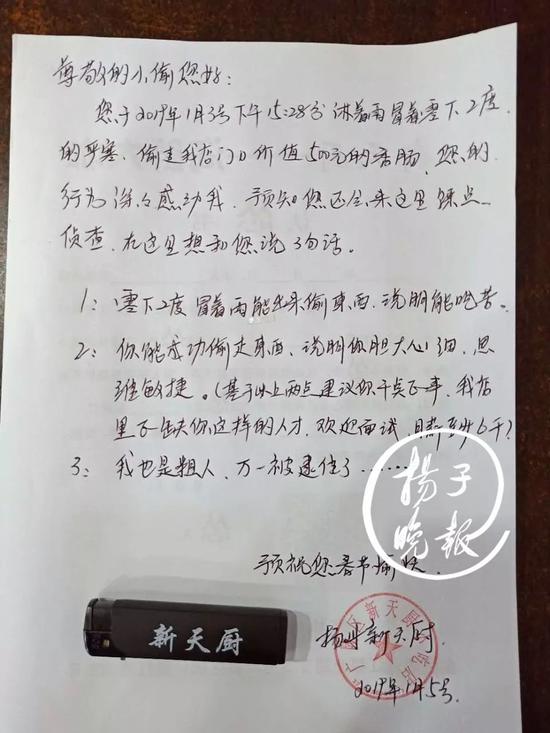 尊敬的小偷您好：
您于2019年1月3号下午15:28分淋着雨冒着零下2度
的严寒，偷走我店门口价值500元的香肠，您的
行为深々感动我，预知您还会来这里踩点
侦查，在这里想和您说3句话。
1：零下2度冒着雨能出来偷東西，说明能吃苦。
2：你能成功偷走東西，说明你胆大心细，思
维敏捷。（基于以上两点建议你干点正事，我店
里正缺你这样的人才，欢迎面试，月薪至少6千？
3：我也是粗人，万一被逮住了……
揚子
晚報
预祝您春节愉快
新天厨
扬州新天厨
2019年1月5号